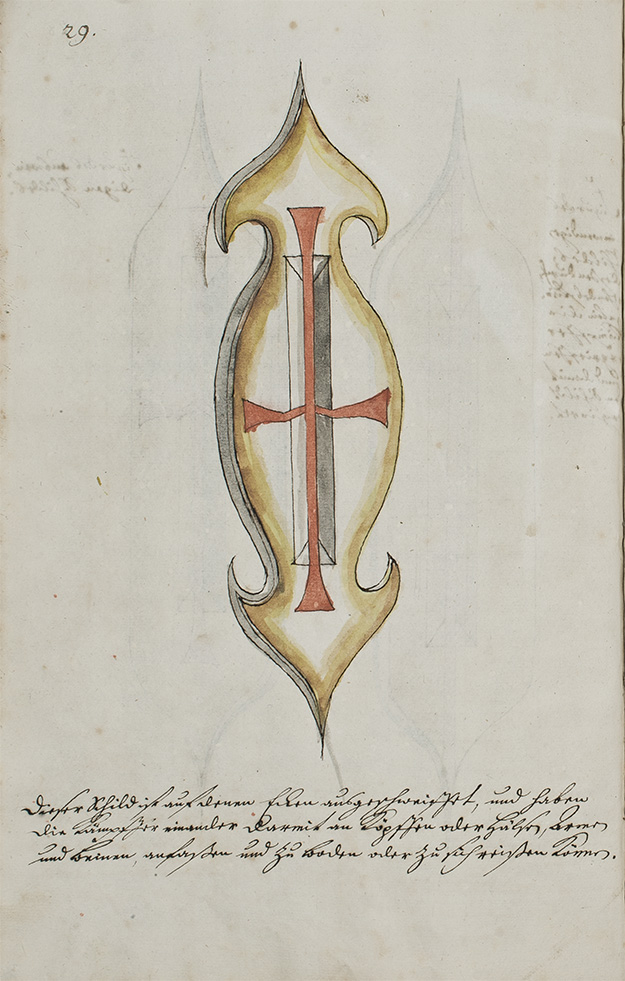 29.
Dieser Schild ist auf denen Ecken ausgeschweiffet, und haben
die Kämpffer einander darmit an Köpffen oder Hälsen, Armen
und Beinen, anfaßen und zu boden oder zu sich reißen können.